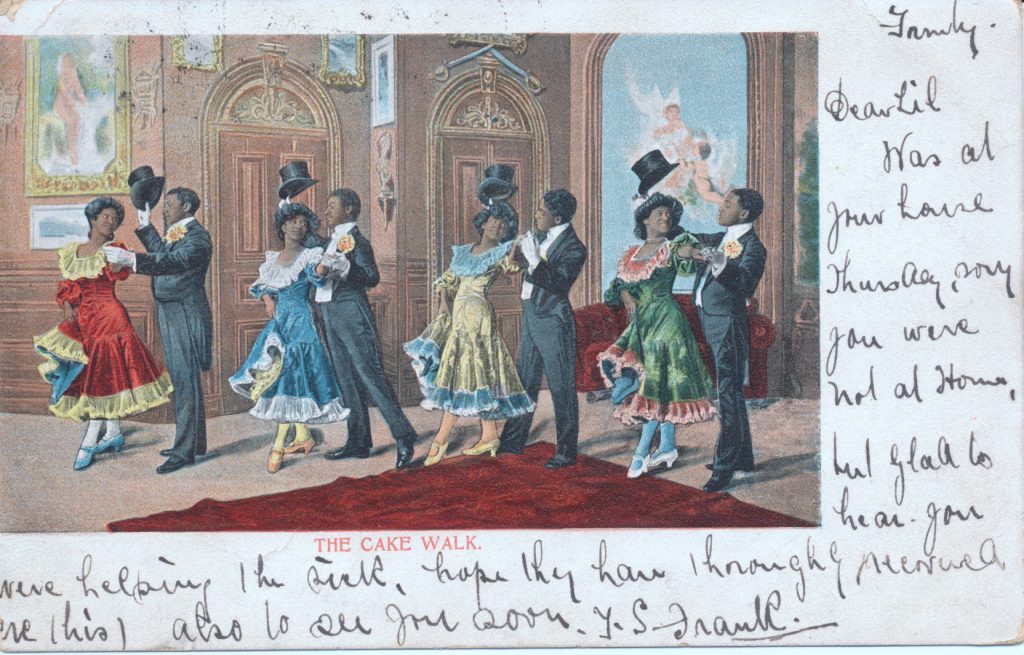 Dear Lil
Was at
your house
Thursday, sorry
you were
not at Home,
but glad to
hear you
THE CAKE WALK.
were helping the sick, hope they have thoroughly recovered
ere (this) also to see you soon. Y. S. Frank.